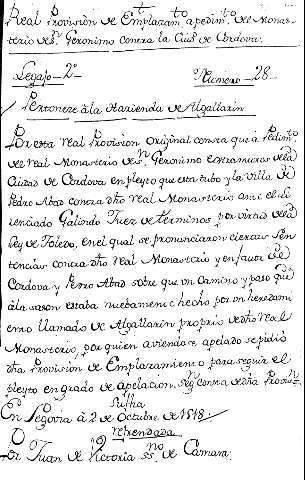 Real Provision de Emplazam.to a pedim.to del Monas-
terio de S.n Geronimo contra la Ciud. de Cordova.
Legajo - 2º
Numero - 28.
Perteneze â la Hazienda de Algallarin
Por esta Real Provision original consta que â Pedim.to
del Real Monasterio de S.n Geronimo extramuros de la
Ciudad de Cordova en pleyto que esta tubo y la Villa de
Pedro Abad contra dho Real Monasterio ante el Li-
cenciado Galindo Juez de terminos por virtud de la
Ley de Toledo, en el qual se pronunciaron ciertas Sen-
tencias contra dho Real Monasterio y en favor de
Cordova y Perro Abad sobre que un Camino y paso que
â la sason estaba nuebamente hecho por un heredami-
ento llamado de Algallarin proprio de dho Real
Monasterio, por quien aviendose apelado se pidio
dha Provision de Emplazamiento para seguir el
pleyto en grado de apelacion. Seg.n consta de dha Provis.n
Su fha
En Segovia â 2 de Octubre de 1518
refrendada
Por Juan de Victoria ss.no de Camara.